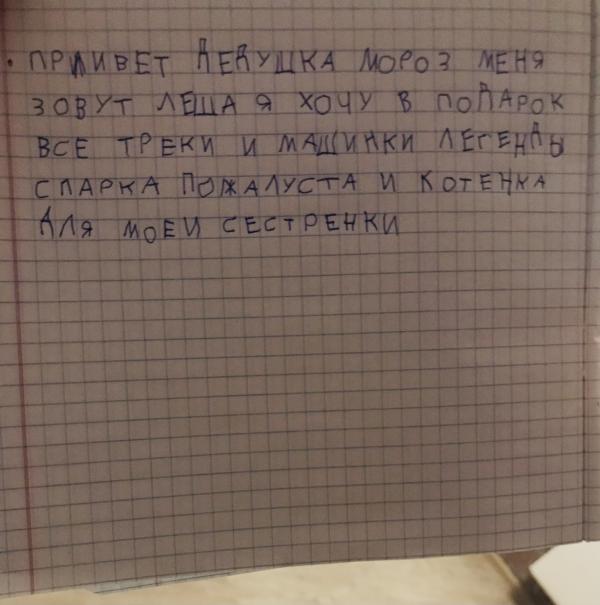 ПРИВЕТ ДЕДУШКА МОРОЗ МЕНЯ
ЗОВУТ ЛЕША Я ХОЧУ В ПОДАРОК
ВСЕ ТРЕКИ И МАШИНКИ ЛЕГЕНДЫ
СПАРКА ПОЖАЛУСТА И КОТЕНКА
ДЛЯ МОЕИ СЕСТРЕНКИ